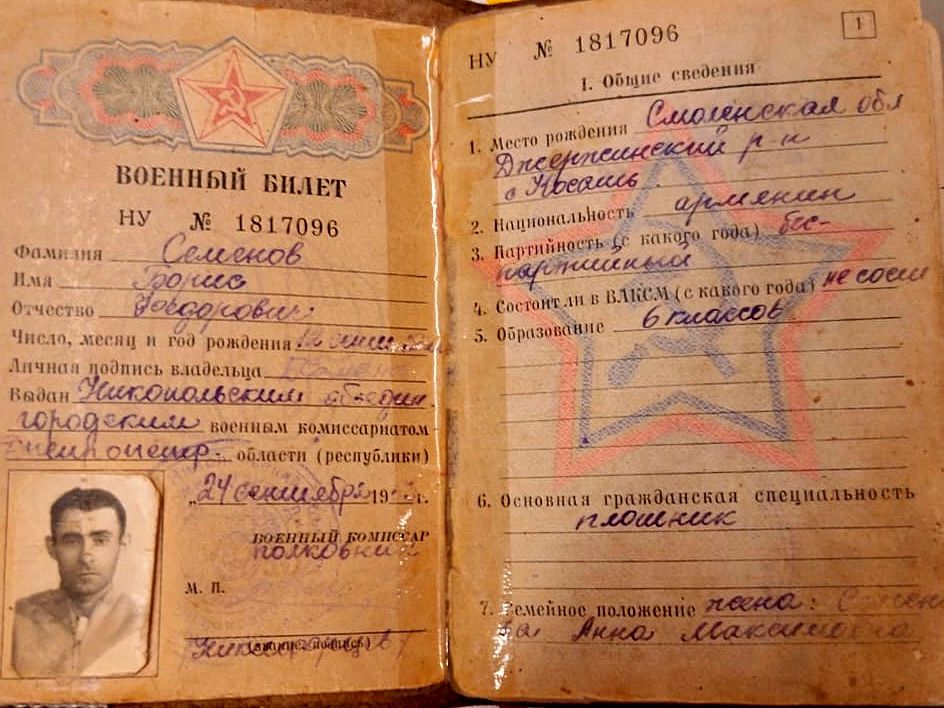 ВОЕННЫЙ БИЛЕТ
НУ № 1817096
Фамилия Семенов
Имя Борис
Отчество
Число, месяц и год рождения 12
Личная подпись владельца
Выдан Никопольским объедин.
городским военным комиссариатом
области (республики)
„24 сентября 19 г.
ВОЕННЫЙ КОМИССАР
полковник
М. П.
(звание, подпись)
1
НУ № 1817096
I. Общие сведения
1. Место рождения Смоленская обл
Дзержинский р-н
с
2. Национальность армянин
3. Партийность (с какого года) бес-
партийный
4. Состоит ли в ВЛКСМ (с какого года) не сост
5. Образование 6 классов
6. Основная гражданская специальность
плотник
7. Семейное положение жена:
Анна Максимовна